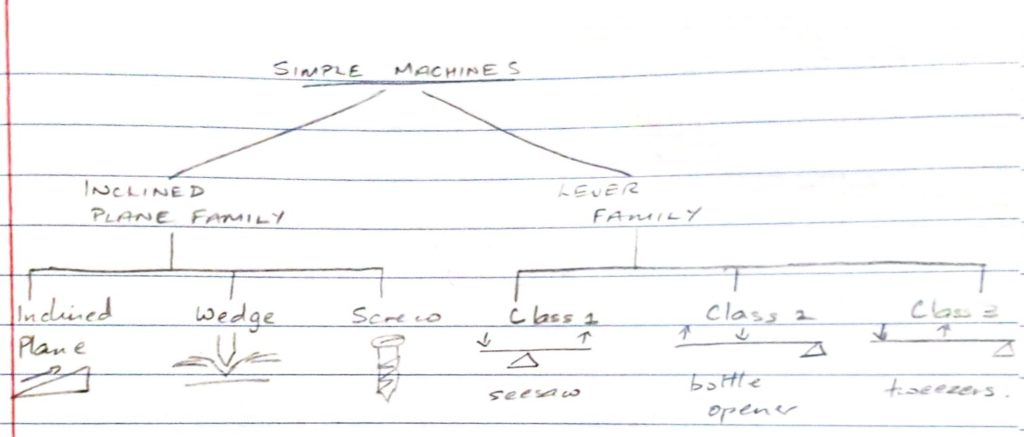 SIMPLE MACHINES
INCLINED
PLANE FAMILY
LEVER
FAMILY
Inclined
Plane
Wedge
Screw
Class 1
seesaw
Class 2
bottle
opener
Class 3
tweezers.